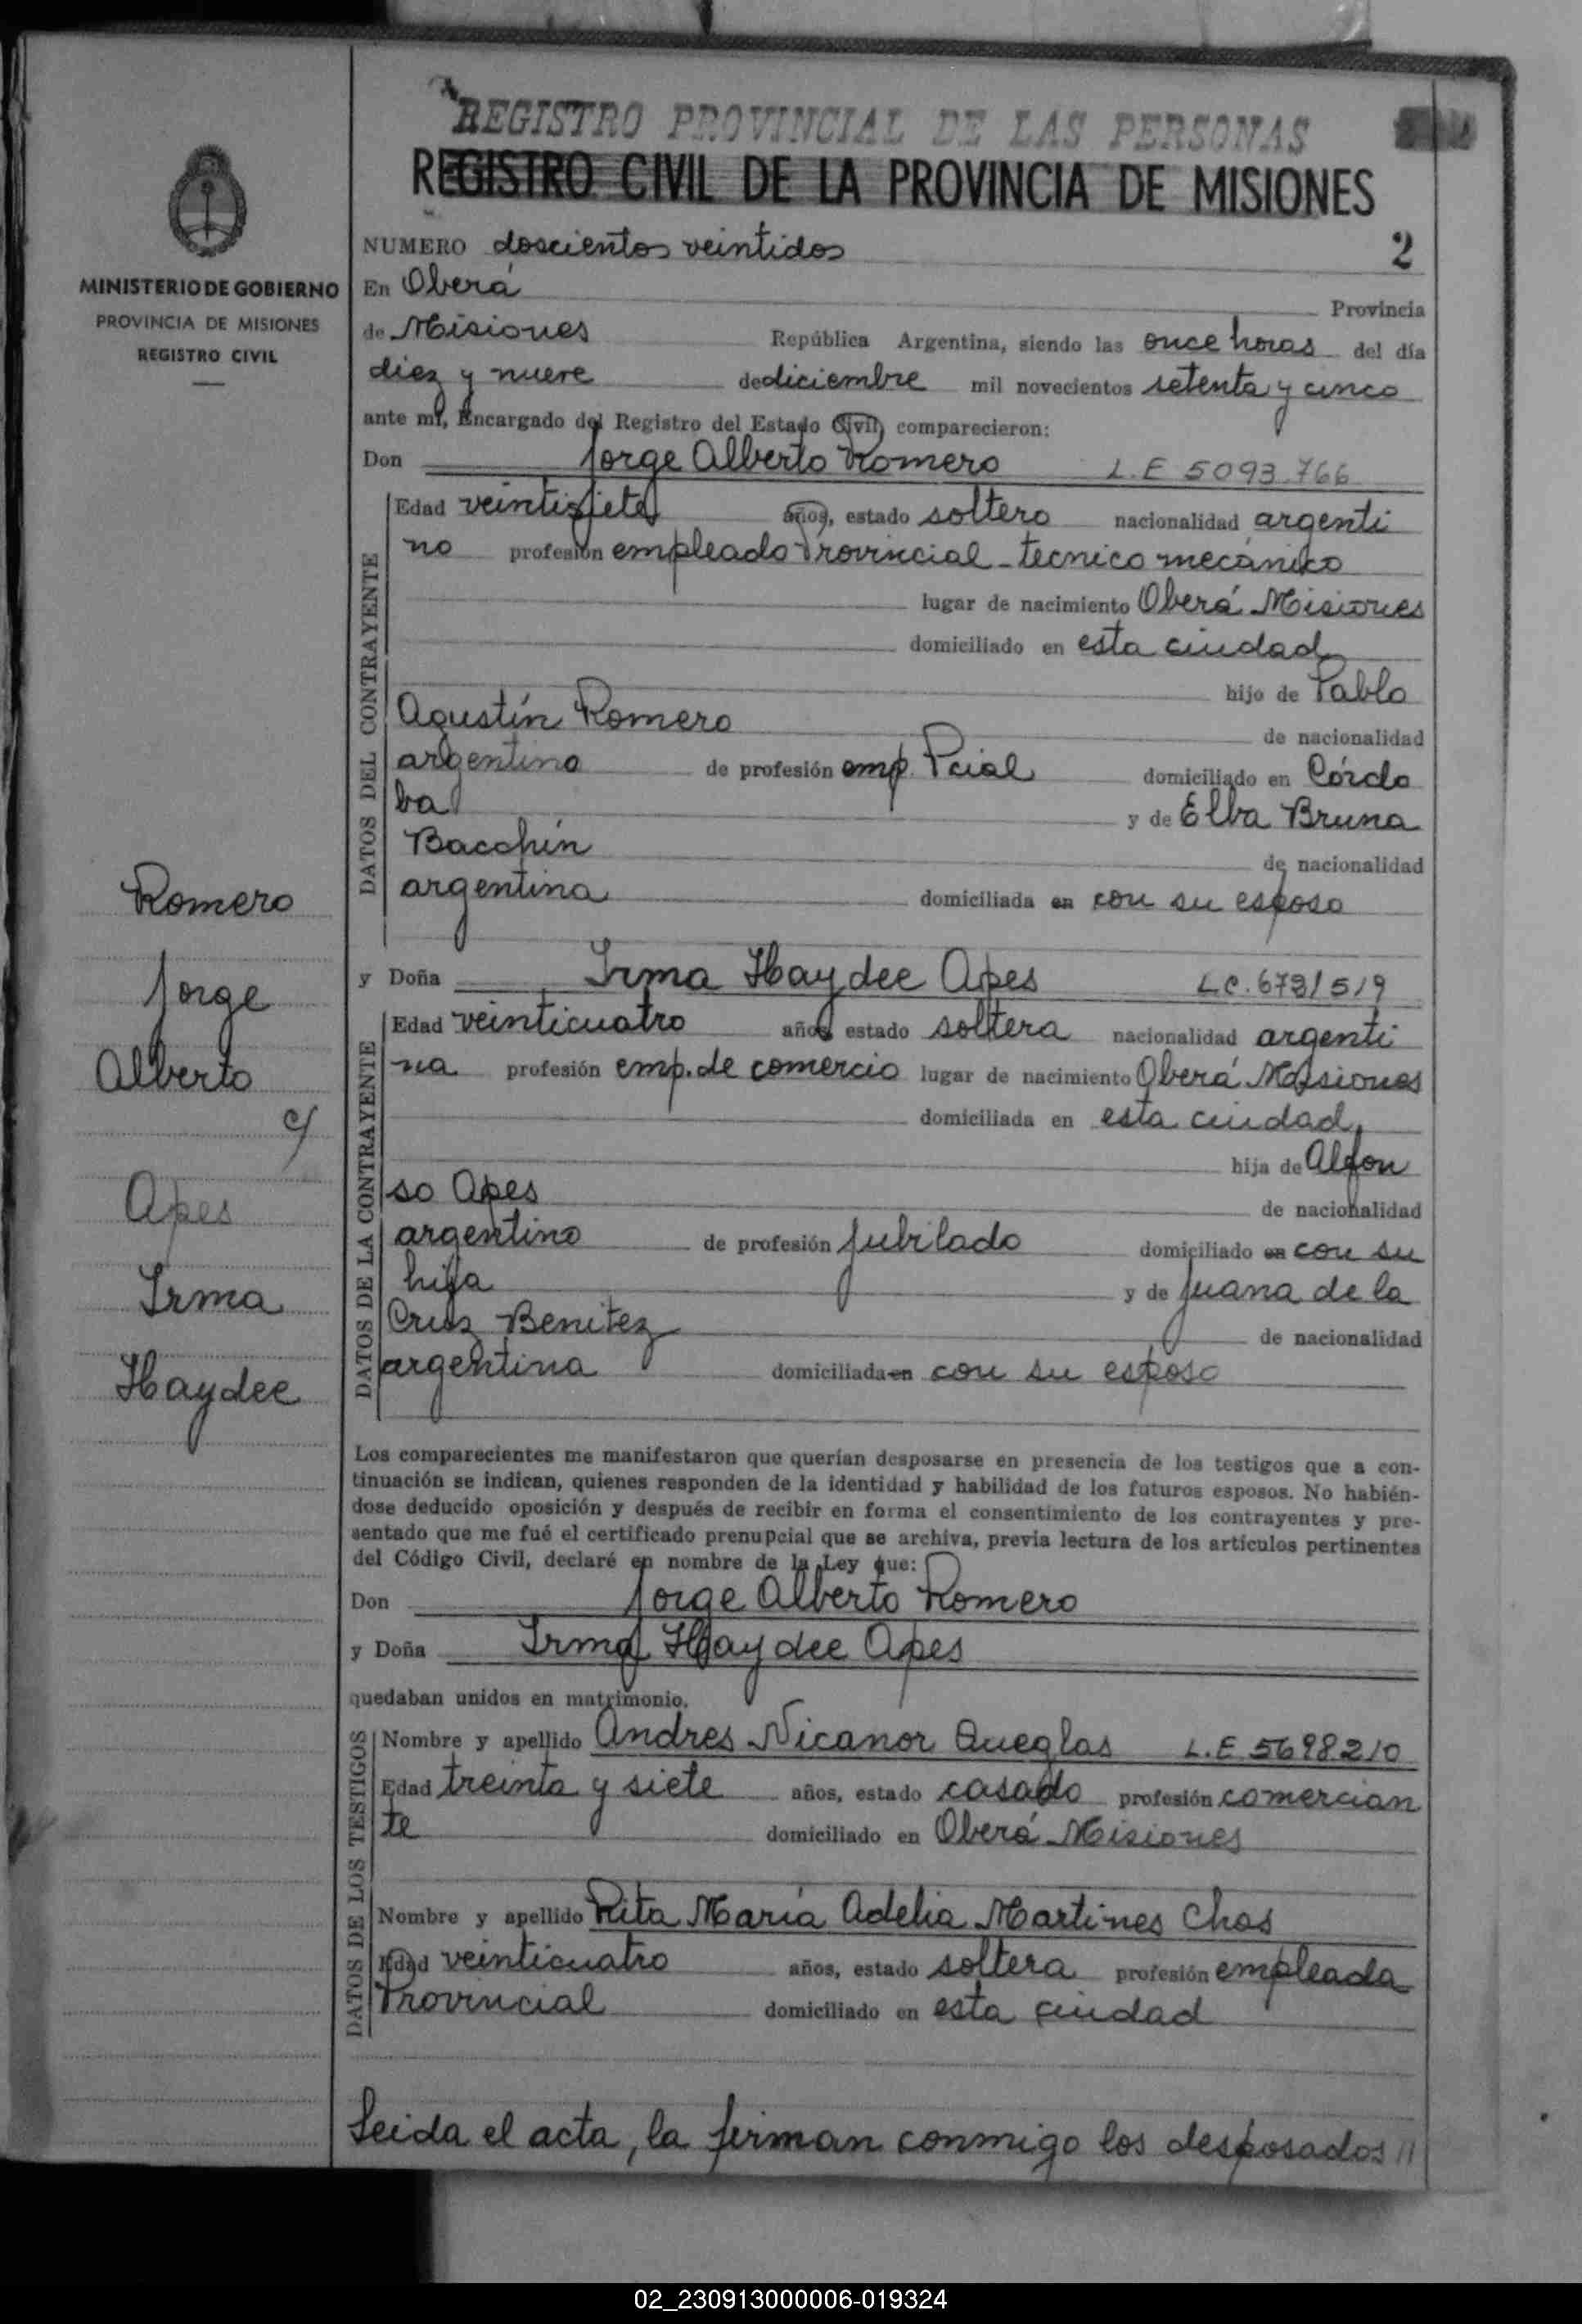 REGISTRO PROVINCIAL DE LAS PERSONAS
REGISTRO CIVIL DE LA PROVINCIA DE MISIONES
MINISTERIO DE GOBIERNO
PROVINCIA DE MISIONES
REGISTRO CIVIL
Romero
Jorge
Alberto
c/
Apes
Irma
Haydee
NUMERO doscientos veintidos 2
En Oberá Provincia
de Misiones República Argentina, siendo las once horas del día
diez y nueve de diciembre mil novecientos setenta y cinco
ante mí, Encargado del Registro del Estado Civil, comparecieron:
Don Jorge Alberto Romero L.E 5093.766
DATOS DEL CONTRAYENTE
Edad veintisiete años, estado soltero nacionalidad argenti
no profesión empleado Provincial - tecnico mecánico
lugar de nacimiento Oberá Misiones
domiciliado en esta ciudad
hijo de Pablo
Agustín Romero de nacionalidad
argentino de profesión emp. Pcial domiciliado en Córdo
ba y de Elba Bruna
Bacchin de nacionalidad
argentina domiciliada en con su esposo
y Doña Irma Haydee Apes L.C.
DATOS DE LA CONTRAYENTE
Edad veinticuatro años estado soltera nacionalidad argenti
na profesión emp. de comercio lugar de nacimiento Oberá Misiones
domiciliada en esta ciudad
hija de Alfon
so Apes de nacionalidad
argentino de profesión jubilado domiciliado en con su
hija y de Juana de la
Cruz Benitez de nacionalidad
argentina domiciliada en con su esposo
Los comparecientes me manifestaron que querían desposarse en presencia de los testigos que a con-
tinuación se indican, quienes responden de la identidad y habilidad de los futuros esposos. No habién-
dose deducido oposición y después de recibir en forma el consentimiento de los contrayentes y pre-
sentado que me fué el certificado prenupcial que se archiva, previa lectura de los artículos pertinentes
del Código Civil, declaré en nombre de la Ley que:
Don Jorge Alberto Romero
y Doña Irma Haydee Apes
quedaban unidos en matrimonio.
DATOS DE LOS TESTIGOS
Nombre y apellido Andres Nicanor Queglas L.E 5698210
Edad treinta y siete años, estado casado profesión comercian
te domiciliado en Oberá Misiones
Nombre y apellido Rita María Adelia Martines Chas
Edad veinticuatro años, estado soltera profesión empleada
Provincial domiciliado en esta ciudad
Leida el acta, la firman conmigo los desposados //
02_230913000006-019324